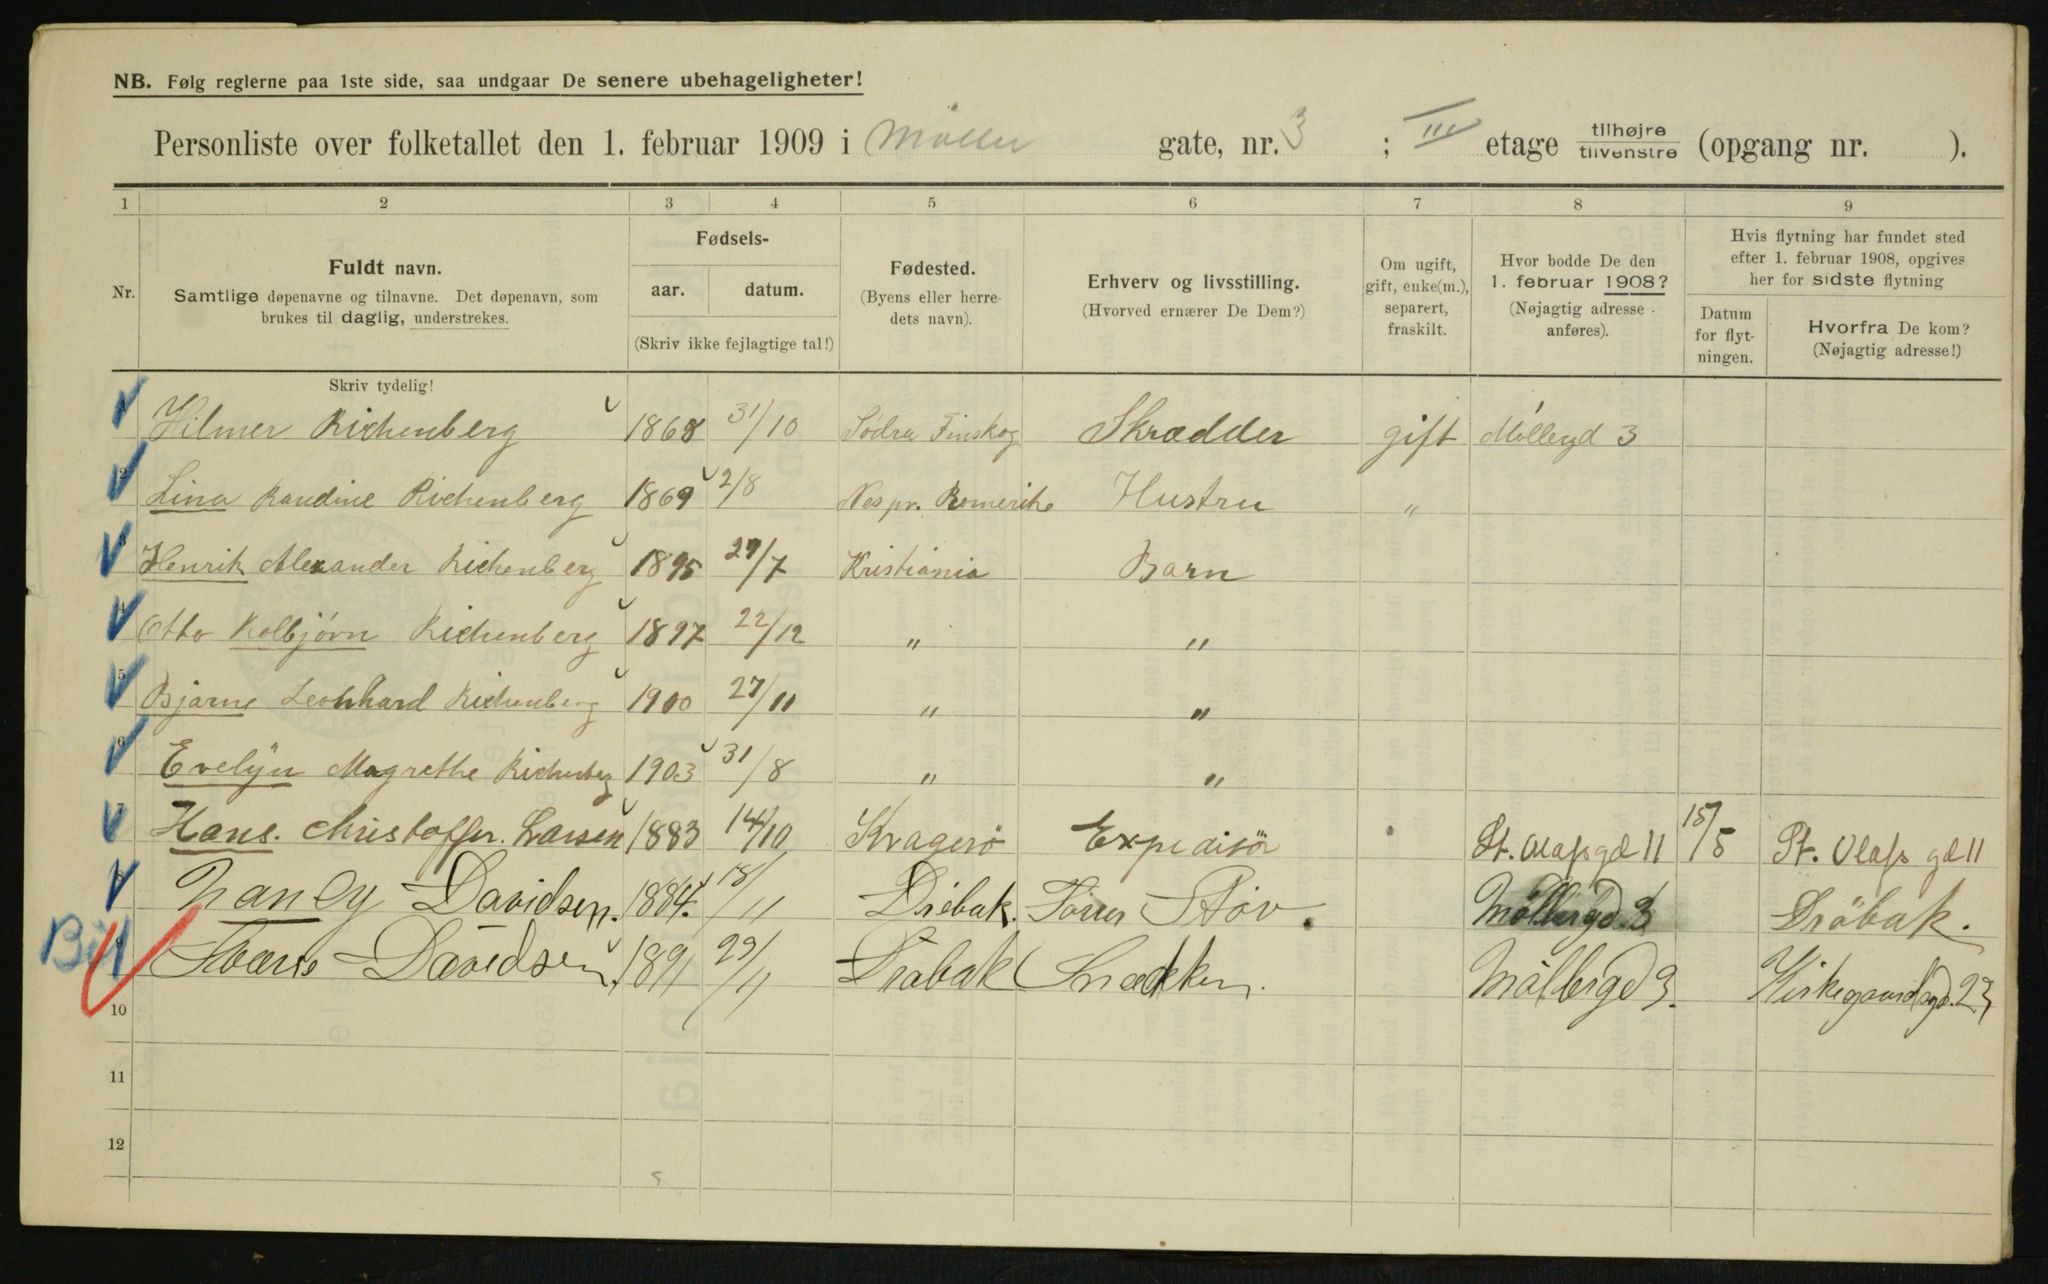 NB. Følg reglerne paa 1ste side, saa undgaar De senere ubehageligheter!
Personliste over folketallet den 1. februar 1909 i Möller gate, nr. 3 ; III etage tilhøjre tilvenstre (opgang nr. ).
1 2 3 4 5 6 7 8 9
Nr.
Fuldt navn.
Samtlige døpenavne og tilnavne. Det døpenavn, som
brukes til daglig, understrekes.
Fødsels-
aar. datum.
(Skriv ikke fejlagtige tal!)
Fødested.
(Byens eller herre-
dets navn).
Erhverv og livsstilling.
(Hvorved ernærer De Dem?)
Om ugift,
gift, enke(m.),
separert,
fraskilt.
Hvor bodde De den
1. februar 1908?
(Nøjagtig adresse
anføres).
Hvis flytning har fundet sted
efter 1. februar 1908, opgives
her for sidste flytning
Datum
for flyt-
ningen.
Hvorfra De kom?
(Nøjagtig adresse!)
Skriv tydelig!
Hilmer Richenberg 1868 31/10 Södra Finskog Skrædder gift Möllergd 3
2 Lina Randine Richenberg 1869 2/8 Nes pr. Romerike Hustru "
3 Henrik Alexander Richenberg 1895 29/7 Kristiania Barn
4 Otto Kolbjörn Richenberg 1897 22/12 " "
5 Bjarne Leonhard Richenberg 1900 27/11 " "
6 Evelÿn Magrethe Richenberg 1903 31/8 " "
7 Hans. Christoffer. Larsen 1883 14/10 Kragerö Expeditör St. Olafsgd 11 15/5 St. Olafs gd 11
8 Nancy Davidsen. 1884. 18/11 Dröbak. Möllergd. 3 Dröbak.
9 Sverre Davidsen. 1891 29/11 Dröbak Snedker. Möllergd 3. Kirkegaardsgd. 23
10
11
12